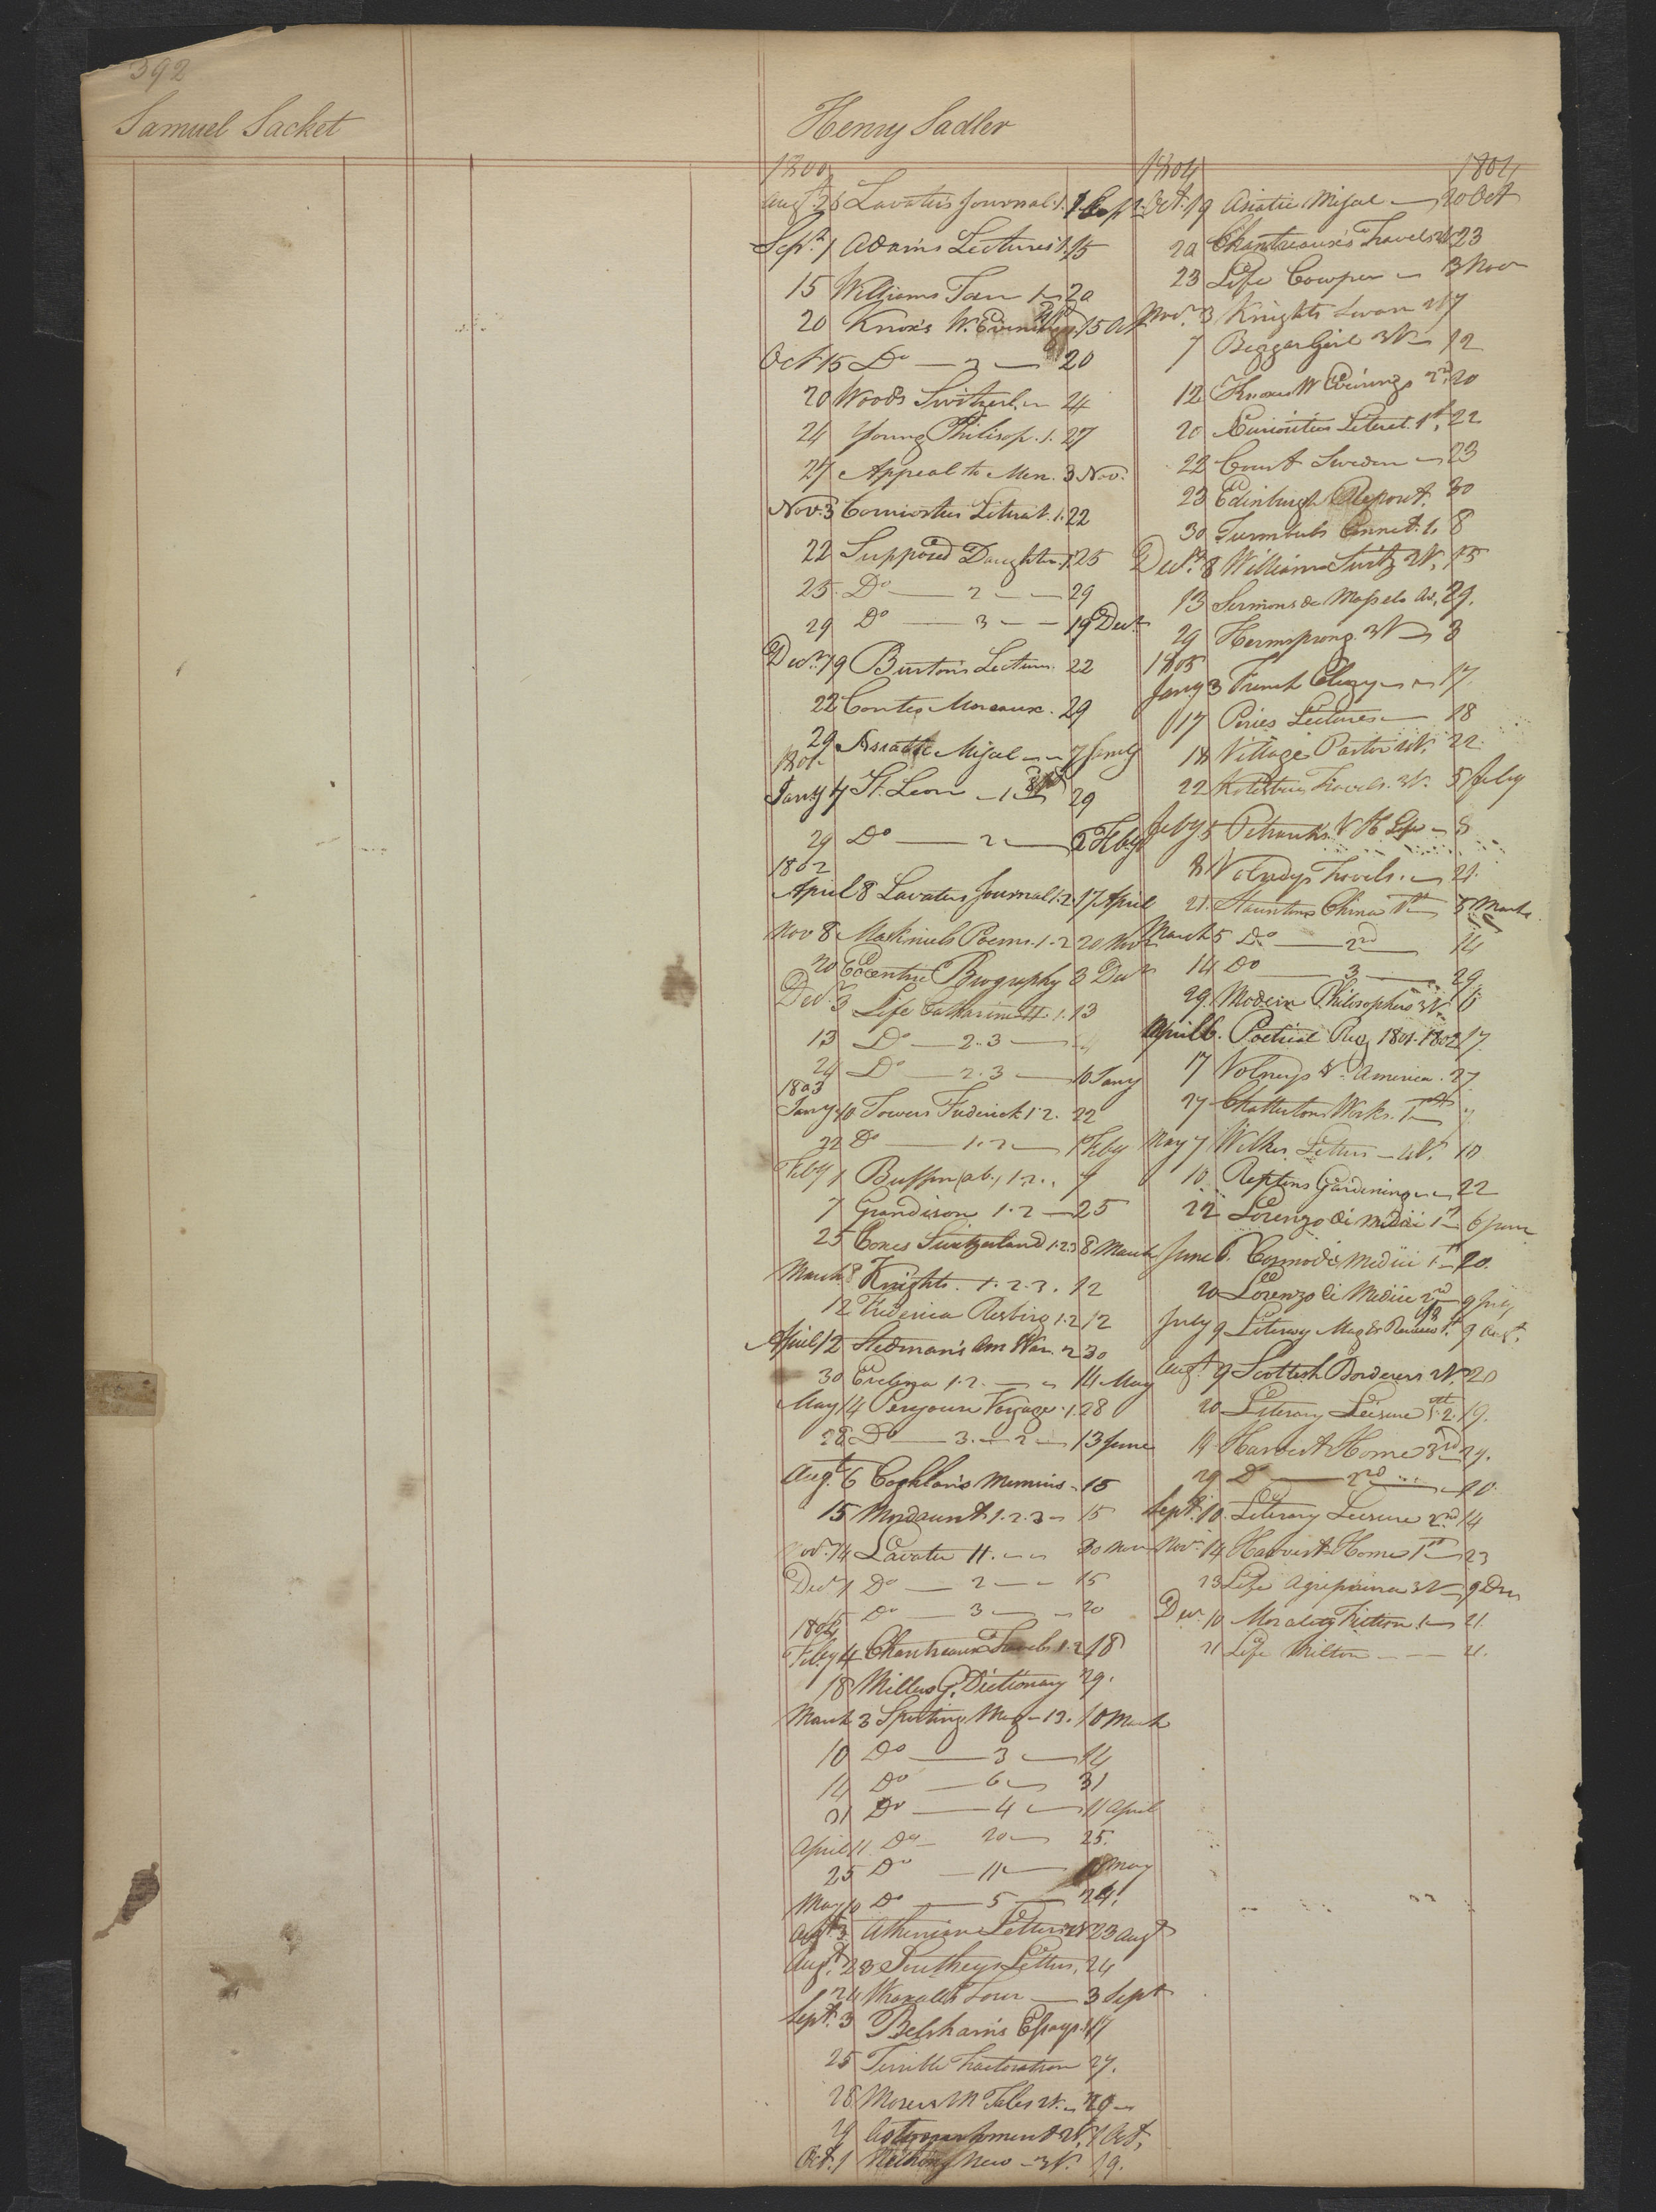 392
Samuel Sacket
Henry Sadler
1800
Aug.t 26 Lavaters Journal 1. 1 Sept.
Sept.r 1 Adams Lectures 1. 15
15 Williams Tour 1 20
20 Knox's W. Evenings 15 Oct
Oct 15 Do — 2 — 20
20 Woods Switzerl. 24
24 Young Philisop. 1. 27
27 Appeal to Men. 3 Nov.
Nov. 3 Couriosties Literat. 1. 22
22 Supposed Daughter. 1. 25
25. Do — 2 — 29
29 Do — 3 — 19 Decr
Decr. 19 Burton's Lectures. 22
22 Contes Moreaux. 29
29 Asiatic Misccl 7 Jany
1801
Jany 7 St. Leon — 1 29
29 Do — 2 — 2 Feby
1802
April 8 Lavaters Journal 1.2. 17 April
Nov 8 Mackniels Poems. 1.2 20 Novr
20 Eccentric Biography 3 Decr
Decr. 3 Life Catharine II. 1. 13
13 Do — 2.3 —
24 Do — 2.3 — 10 Jany
1803
Jany 10 Towers Frederick 1.2. 22
22 Do — 1.2 — 1 Feby
Feby 1 Buffon (ab.) 1.2. 7
7 Grandison 1.2 — 25
25 Coxes Switzerland 1.2.3 8 March
March 8 Knights. 1.2.3. 12
12 Frederica Risbirg 1.2 12
April 12 Stedman's Am War. 2 30
30 Evelina 1.2. 14 May
May 14 Perouse Voyage. 1. 28
28 Do — 3. — 2 — 13 June
Augt. 6 Coghlan's Memoirs. 15
15 Mordaunt 1.2.3 15
Novr. 14 Lavater 11. 30 Nov
Decr 1 Do — 2 — 15
15 Do — 3 — 20
1804
Feby 4 Chantreaux Travels 1.2 18
18 Millers G. Dictionary 29.
March 3 Sporting Mag — 13. 10 March
10 Do — 3 — 14
14 Do — 6 — 31
31 Do — 4 — 11 April
April 11 Do — 20 — 25.
25 Do — 11 — 10 May
May 10 Do — 5 — 24.
Augt 3 Athenian Letters 2V 23 Augt
Augt. 23 Southeys Letters, 24
24 Wraxalls Tour — 3 Sept
Sept. 3 Belsham's Essays. 17
25 Terrible Tractoration 27.
28 Moses M Tales 2V. 29
29 1 Oct.
Oct. 1 Nothing New — 3V. 19.
1804 1804
Oct. 19 Asiatic Miscel — 20 Oct
20 Chantreaux's Travels 2V 23
23 Life Cowper 3 Nov
Novr. 3 Knights Swan 2V 7
7 Beggar Girl 3V 12
12 Knoxes W Evenings 2nd. 20
20 Curiosities Literat. 1st, 22
22 Court Sweden — 23
23 Edinburgh Report. 30
30 Turnbuls Connect. 1. 8
Decr. 8 Williams Switz 2V. 13
13 Sermons de Masselo &c, 29.
29 Hermsprong. 3V 3
1805
Jany 3 French Clergy 17.
17 Peries Lectures — 18
18 Village Pastor 1V. 22
22 Kotezbues Travels. 3V. 5 Feby
Feby 5 Petrarchs V & Life — 8
8 Volneys Travels. 21.
21. Stauntons China 1st 5 March.
March 5 Do — 2nd — 14
14 Do — 3 — 29
29. Modern Philosophers 3V. 6
April 6. Poetical Reg. 1801-1802 17.
17 Volneys V. America. 27
27 Chattertons Works. 1st 7
May 7 Wilkes Letters — 4V. 10
10 Reptons Gardening 22
22 Lorenzo di Medici 1st 6 June
June 6. Cosmo di Medici 1st 20.
20 Lorenzo di Medici 2nd 9 July
July 9 Literary Mag & Review 1st. 9 Augt.
Augt. 9 Scottish Borderers 2V. 20
20 Literary Leisure 1.2. 19.
19 Harvest Home 3rd 29.
29 Do — 2nd — 10.
Sept. 10. Literary Leisure 2nd. 14
Novr. 14 Harvest Home 1st 23
23 Life Agrippina 3V 9 Dec
Decr. 10 Morality Fiction. 1 21.
21 Life Milton — 4.